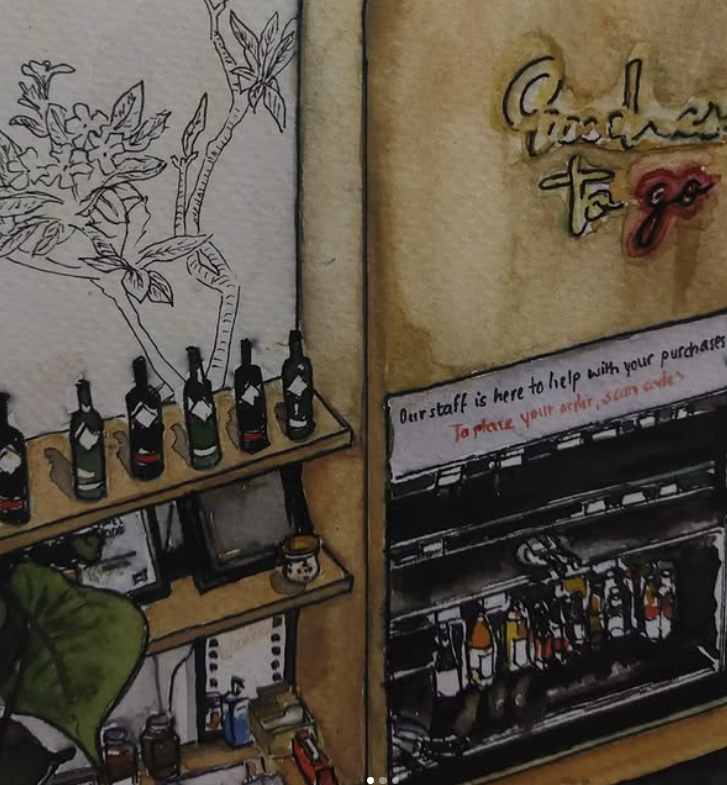 to go
Our staff is here to help with your purchases
To place your order, scan codes